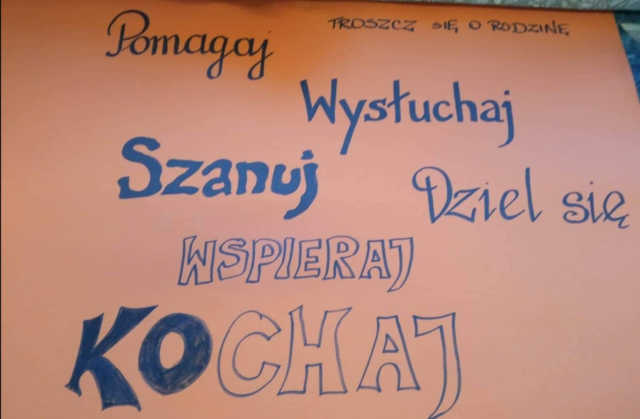 Pomagaj
TROSZCZ SIĘ O RODZINĘ
Wysłuchaj
Szanuj
Dziel się
WSPIERAJ
KOCHAJ